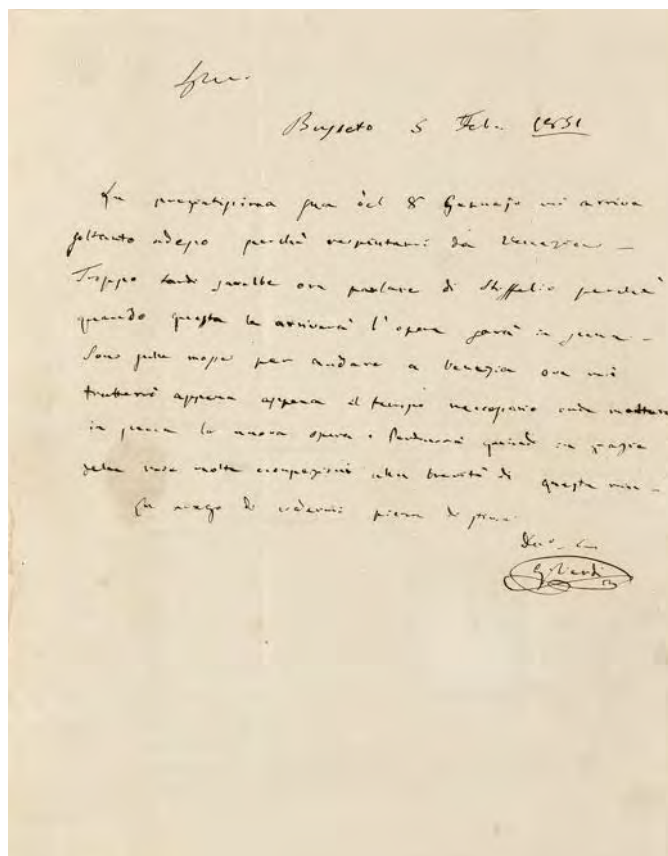 Busseto 5 Feb. 1851
La pregiatissima sua del 8 Gennajo mi arriva
soltanto adesso perchè respintami da Venezia –
Troppo tardi sarebbe ora parlare di Stiffelio perchè
quando questa le arriverà l'opera sarà in scena –
Sono sulle mosse per andare a Venezia ove mi
tratterrò appena appena il tempo necessario onde mettere
in scena la nuova opera. Perdonerà quindi in grazia
delle mie molte occupazioni alla brevità di questa mia –
La prego di credermi pieno di stima
G. Verdi